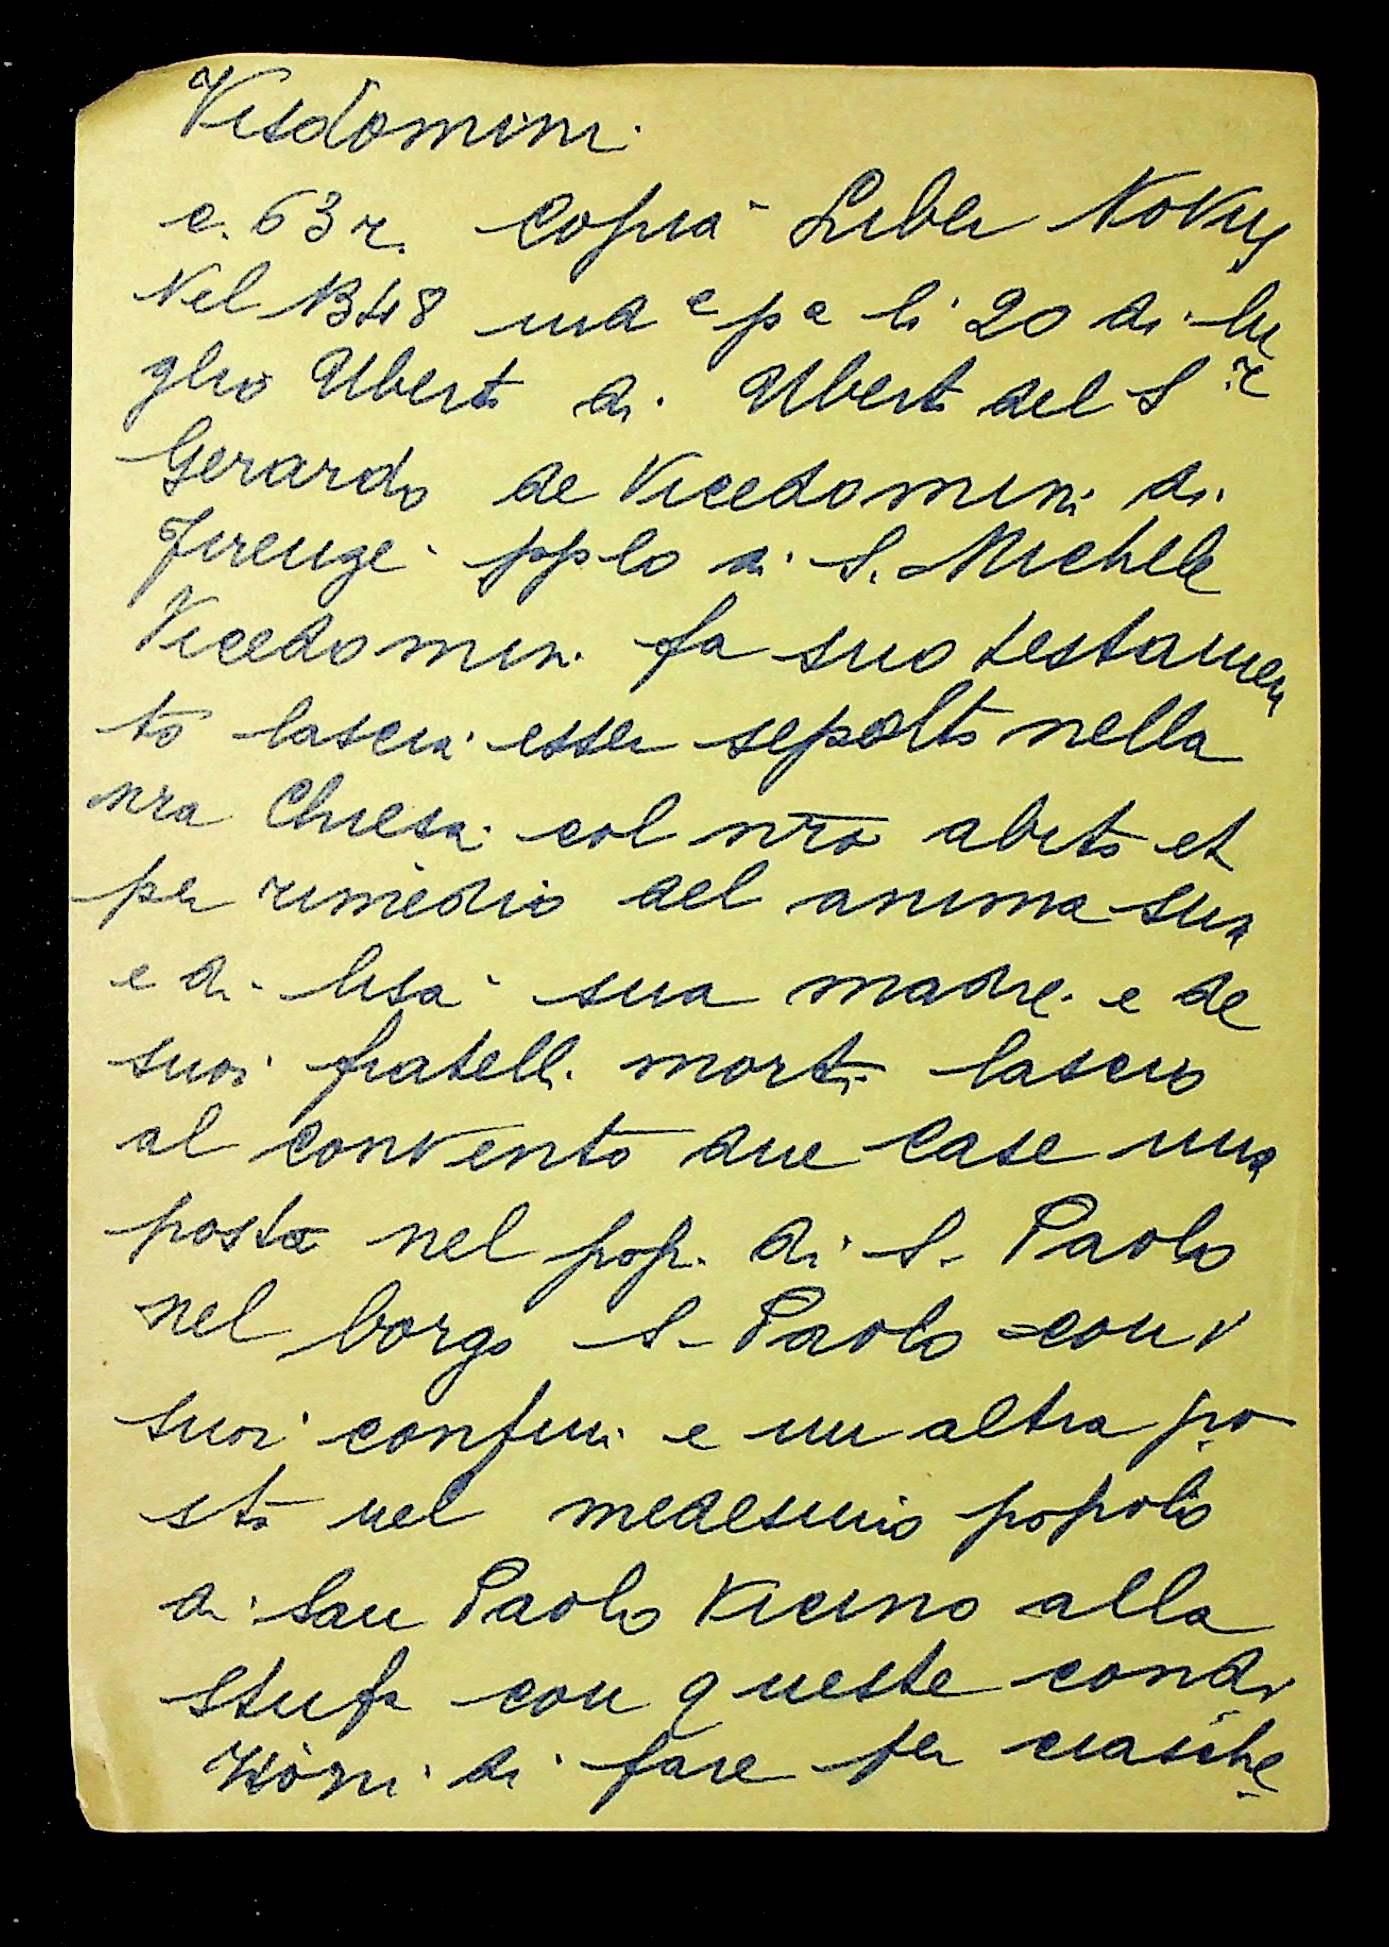 Visdomini
c. 63 r. Copia Liber Novus
Nel 1348 ind e pa li 20 di lu
glio Uberto di Uberto del Sr
Gerardo de Vicedomini di
Firenze pplo di S. Michele
Vicedomini fa suo testamen
to lascia esser sepolto nella
nra Chiesa col nro abito et
per rimedio del anima sua
e di lisa sua madre e de
suoi fratelli morti lascio
al convento due case una
posta nel pop. di S. Paolo
nel borgo S. Paolo con i
suoi confini e un altra po
sta nel medesimo popolo
di San Paolo Vicino alla
stufa con queste condi
zioni di fare per ciasche